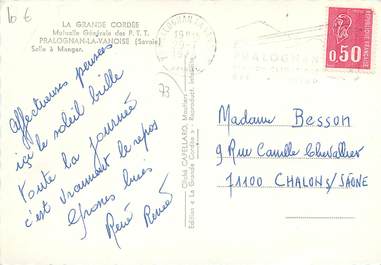 10 €
LA GRANDE CORDÉE
Mutuelle Générale des P. T. T.
PRALOGNAN-LA-VANOISE (Savoie)
Salle à Manger.
Affectueuses pensées
içi le soleil brille
toute la journée
c'est vraiment le repos
Grosses bises
René Renée
73
Cliché CAPELLARO,
Édition « La Grande Cordée » - Reproduct. Interdite
PRALOGNAN
0,50
Madame Besson
9 Rue Camille Chevallier
71100 CHALONS/SAÔNE